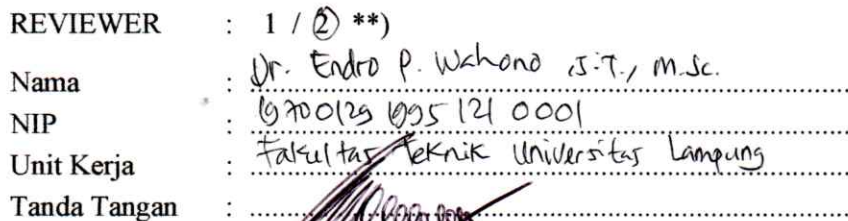 REVIEWER : 1 / 2 **)
Nama : Dr. Endro P. Wahono, S.T., M.Sc.
NIP : 19700129 199512 1 0001
Unit Kerja : Fakultas Teknik Universitas Lampung
Tanda Tangan :